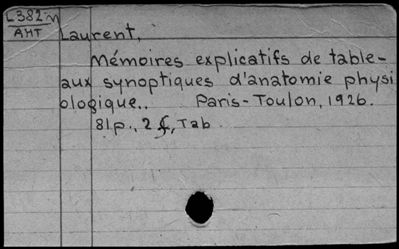 L382m
AHT
Laurent,
Mémoires explicatifs de table-
aux synoptiques d'anatomie physi
ologique.. Paris-Toulon, 1926.
81p., 2 , Tab